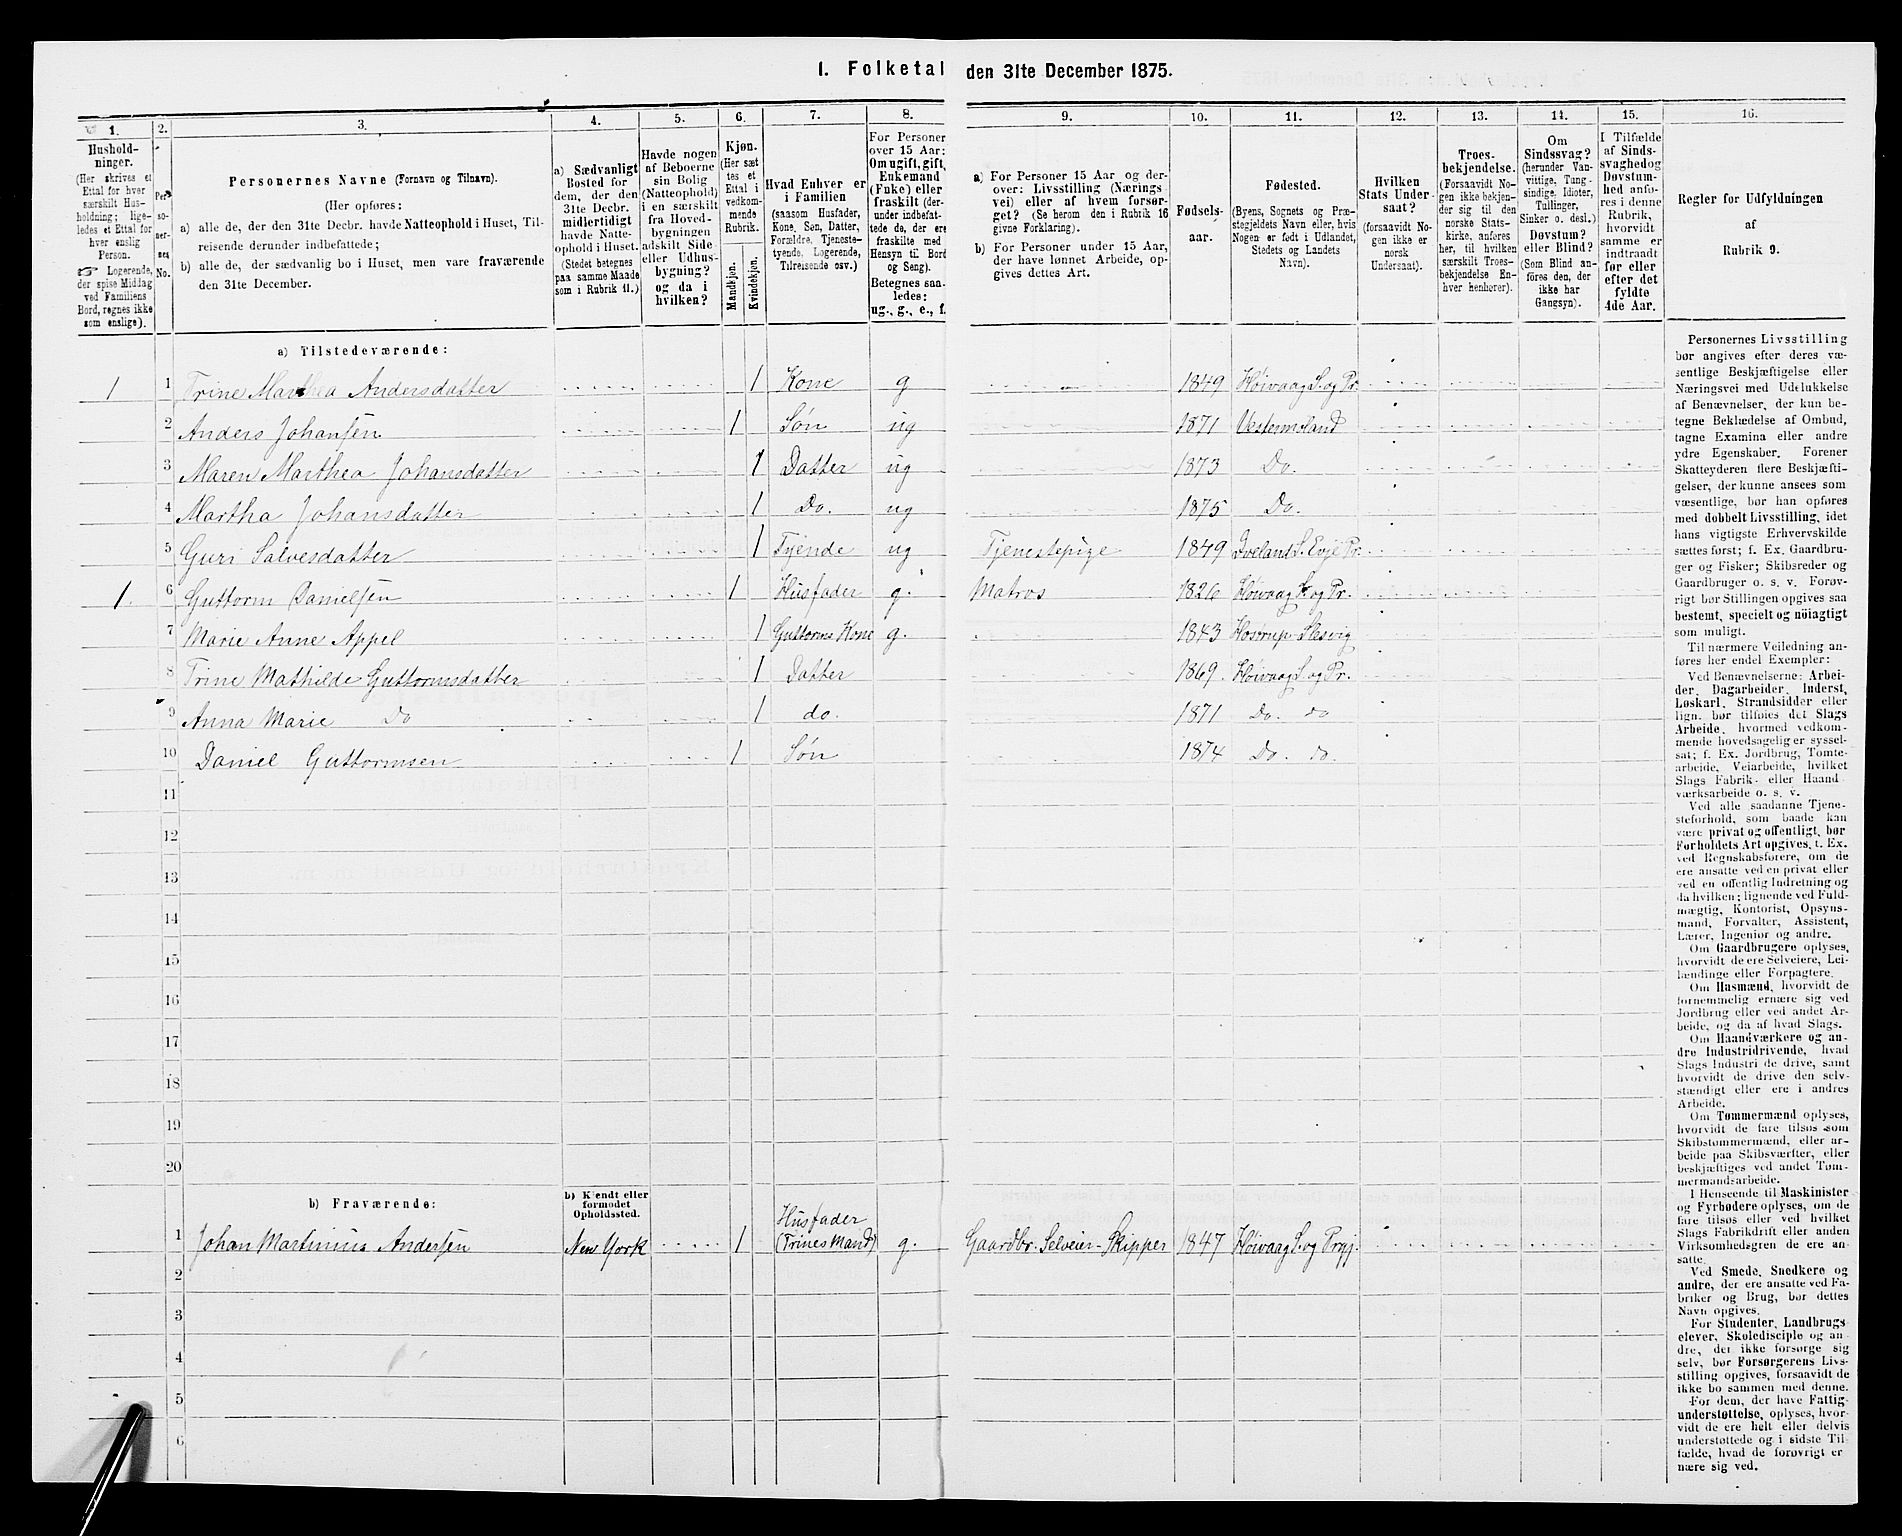 1. Folketal den 31te December 1875.
1. 2. 3. 4. 5. 6. 7. 8. 9. 10. 11. 12. 13. 14. 15. 16.
Hushold-
ninger.
(Her skrives et
Ettal for hver
særskilt Hus-
holdning; lige-
ledes et Ettal for
hver enslig
Person.
☞ Logerende,
der spise Middag
ved Familiens
Bord, regnes ikke
som enslige).
Per-
so-
ner-
nes
No.
Personernes Navne (Fornavn og Tilnavn).
(Her opføres:
a) alle de, der den 31te Decbr. havde Natteophold i Huset, Til-
reisende derunder indbefattede;
b) alle de, der sædvanlig bo i Huset, men vare fraværende
den 31te December.
a) Sædvanligt
Bosted for
dem, der den
31te Decbr.
midlertidigt
havde Natte-
ophold i Huset.
(Stedet betegnes
paa samme Maade
som i Rubrik 11.)
Havde nogen
af Beboerne
sin Bolig
(Natteophold)
i en særskilt
fra Hoved-
bygningen
adskilt Side-
eller Udhus-
bygning?
og da i
hvilken?
Kjøn.
(Her sæt-
tes et
Ettal i
vedkom-
mende
Rubrik.
Mandkjøn.
Kvindekjøn.
Hvad Enhver er
i Familien
(saasom Husfader,
Kone, Søn, Datter,
Forældre, Tjeneste-
tyende, Logerende,
Tilreisende osv.)
For Personer
over 15 Aar:
Om ugift, gift,
Enkemand
(Enke) eller
fraskilt (der-
under indbefat-
tede de, der ere
fraskilte med
Hensyn til Bord
og Seng).
Betegnes saa-
ledes:
ug., g., e., f.
a) For Personer 15 Aar og der-
over: Livsstilling (Nærings-
vei) eller af hvem forsør-
get? (Se herom den i Rubrik 16
givne Forklaring).
b) For Personer under 15 Aar,
der have lønnet Arbeide, op-
gives dettes Art.
Fødsels-
aar.
Fødested.
(Byens, Sognets og Præ-
stegjeldets Navn eller, hvis
Nogen er født i Udlandet,
Stedets og Landets
Navn).
Hvilken
Stats Under-
saat?
(forsaavidt No-
gen ikke er
norsk
Undersaat).
Troes-
bekjendelse.
(Forsaavidt No-
gen ikke bekjen-
der sig til den
norske Stats-
kirke, anføres
her, til hvilken
særskilt Troes-
bekjendelse En-
hver henhører).
Om
Sindssvag?
(herunder Van-
vittige, Tung-
sindige, Idioter,
Tullinger,
Sinker o. desl.)
Døvstum?
eller Blind?
(Som Blind an-
føres den, der
ikke har
Gangsyn).
I Tilfælde
af Sinds-
svaghed og
Døvstum-
hed anfø-
res i denne
Rubrik,
hvorvidt
samme er
indtraadt
før eller
efter det
fyldte
4de Aar.
Regler for Udfyldningen
af
Rubrik 9.
a) Tilstedeværende:
1 1 Trine Marthea Andersdatter 1 Kone g 1849 Høivaag S. og Pr.
2 Anders Johansen 1 Søn ug 1871 Vestermoland
3 Maren Marthea Johansdatter 1 Datter ug 1873 Do.
4 Martha Johansdatter 1 Do. ug 1875 Do.
5 Guri Salvesdatter 1 Tjende ug Tjenestepige 1849 Iveland S. Evje Pr.
1. 6 Guttorm Danielsen 1 Husfader g. Matros 1826 Høivaag S. og Pr.
7 Marie Anne Appel 1 Guttorms Kone g. 1843 Hostrup Slesvig
8 Trine Mathilde Guttormsdatter 1 Datter 1869. Høivaag S. og Pr.
9 Anna Marie Do 1 do. 1871 Do. do
10 Daniel Guttormsen 1 Søn 1874 Do. do.
11
12
13
14
15
16
17
18
19
20
b) Fraværende:
b) Kjendt eller
formodet
Opholdssted.
1 Johan Martinius Andersen New York 1 Husfader
(Trines Mand) g. Gaardbr. Selveier - Skipper 1847 Høivaag S. og Prgj.
2
3
4
5
6
Personernes Livsstilling
bør angives efter deres væ-
sentlige Beskjæftigelse eller
Næringsvei med Udelukkelse
af Benævnelser, der kun be-
tegne Beklædelse af Ombud,
tagne Examina eller andre
ydre Egenskaber. Forener
Skatteyderen flere Beskjæfti-
gelser, der kunne ansees som
væsentlige, bør han opføres
med dobbelt Livsstilling, idet
hans vigtigste Erhvervskilde
sættes først; f. Ex. Gaardbru-
ger og Fisker; Skibsreder og
Gaardbruger o. s. v. Forøv-
rigt bør Stillingen opgives saa
bestemt, specielt og nöiagtigt
som muligt.
Til nærmere Veiledning an-
føres her endel Exempler:
Ved Benævnelserne: Arbei-
der, Dagarbeider, Inderst,
Løskarl, Strandsidder eller
lign. bør tilføies det Slags
Arbeide, hvormed vedkom-
mende hovedsagelig er syssel-
sat; f. Ex. Jordbrug, Tomte-
arbeide, Veiarbeide, hvilket
Slags Fabrik- eller Haand-
værksarbeide o. s. v.
Ved alle saadanne Tjene-
steforhold, som baade kan
være privat og offentligt, bør
Forholdets Art opgives, t. Ex.
ved Regnskabsførere, om de
ere ansatte ved en privat eller
ved en offentlig Indretning og
da hvilken; lignende ved Fuld-
mægtig, Kontorist, Opsyns-
mand, Forvalter, Assistent,
Lærer, Ingeniør og andre.
Om Gaardbrugere oplyses,
hvorvidt de ere Selveiere, Lei-
lændinge eller Forpagtere.
Om Husmænd, hvorvidt de
fornemmelig ernære sig ved
Jordbrug eller ved andet Ar-
beide, og da af hvad Slags.
Om Haandværkere og an-
dre Industridrivende, hvad
Slags Industri de drive, samt
hvorvidt de drive den selv-
stændigt eller ere i andres
Arbeide.
Om Tømmermænd oplyses,
hvorvidt de fare tilsøs som
Skibstømmermænd, eller ar-
beide paa Skibsværfter, eller
beskjæftiges ved andet Tøm-
mermandsarbeide.
I Henseende til Maskinister
og Fyrbødere oplyses, om de
fare tilsøs eller ved hvilket
Slags Fabrikdrift eller anden
Virksomhedsgren de ere an-
satte.
Ved Smede, Snedkere og
andre, der ere ansatte ved Fa-
briker og Brug, bør dettes
Navn opgives.
For Studenter, Landbrugs-
elever, Skoledisciple og an-
dre, der ikke forsørge sig
selv, bør Forsørgerens Livs-
stilling opgives, forsaavidt de
ikke bo sammen med denne.
For dem, der have Fattig-
understøttelse, oplyses, hvor-
vidt de ere helt eller delvis
understøttede og i sidste Til-
fælde, hvad de forøvrigt er-
nære sig ved.